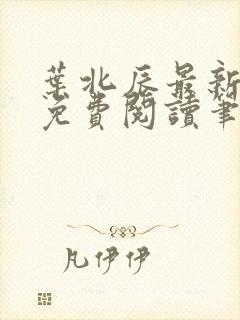 葉北辰最新
免費閱讀筆
凡伊伊